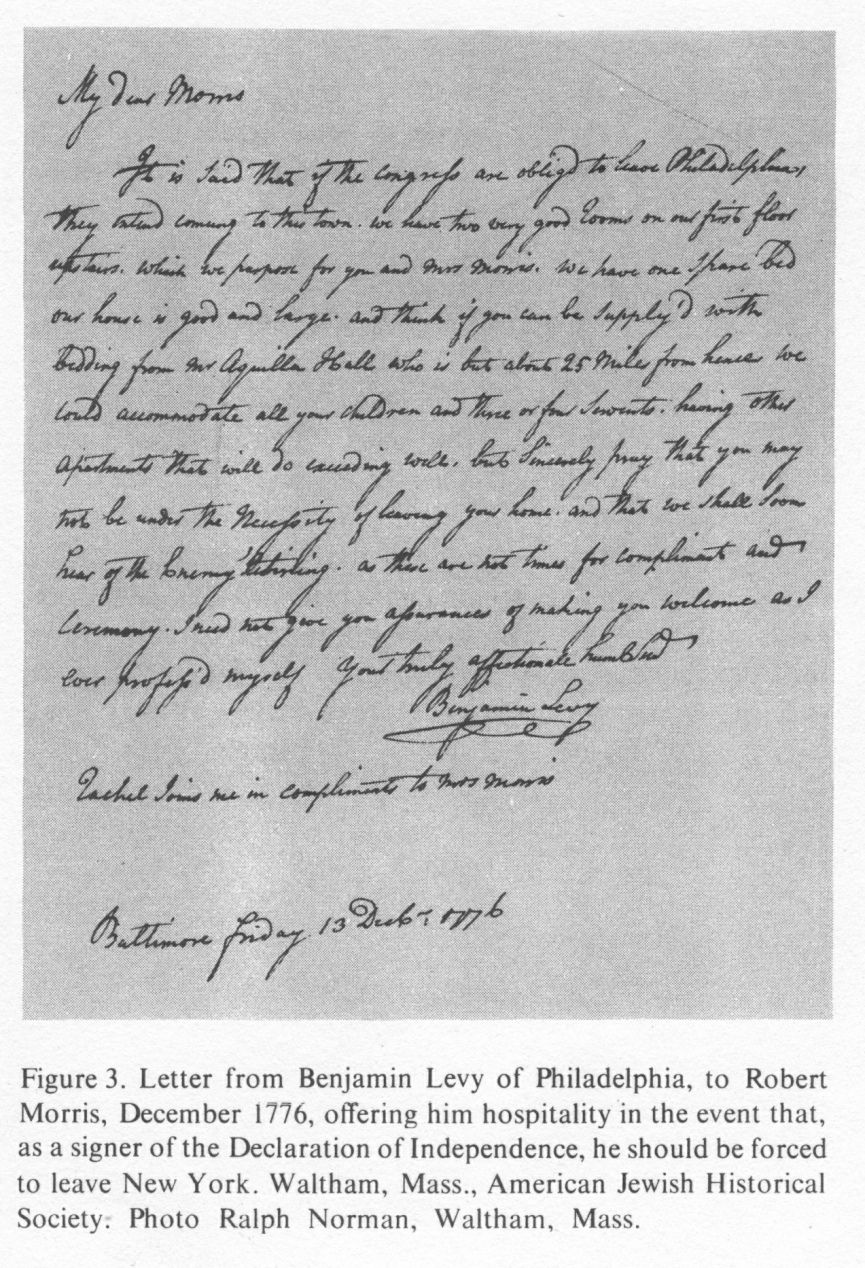 My dear Morris
It is said that if the congress are oblig'd to leave Philadelphia,
they intend comeing to this town. we have two very good rooms on our first floor
upstairs. which we purpose for you and Mrs Morris. we have one spare bed
our house is good and large. and think if you can be supply'd with
bedding from Mr Aquilla Hall who is but about 25 Miles from hence we
could accommodate all your children and three or four servants. having other
apartments that will do exceeding well. but sincerely pray that you may
not be under the Necessity of leaving your home. and that we shall soon
hear of the Enemy retireing. as these are not times for compliment and
ceremony. I need not give you assurances of making you welcome as I
ever profess'd myself Your truly affectionate
Benjamin Levy
Rachel Joins me in compliments to Mrs Morris
Baltimore friday 13 Decbr 1776
Figure 3. Letter from Benjamin Levy of Philadelphia, to Robert
Morris, December 1776, offering him hospitality in the event that,
as a signer of the Declaration of Independence, he should be forced
to leave New York. Waltham, Mass., American Jewish Historical
Society. Photo Ralph Norman, Waltham, Mass.